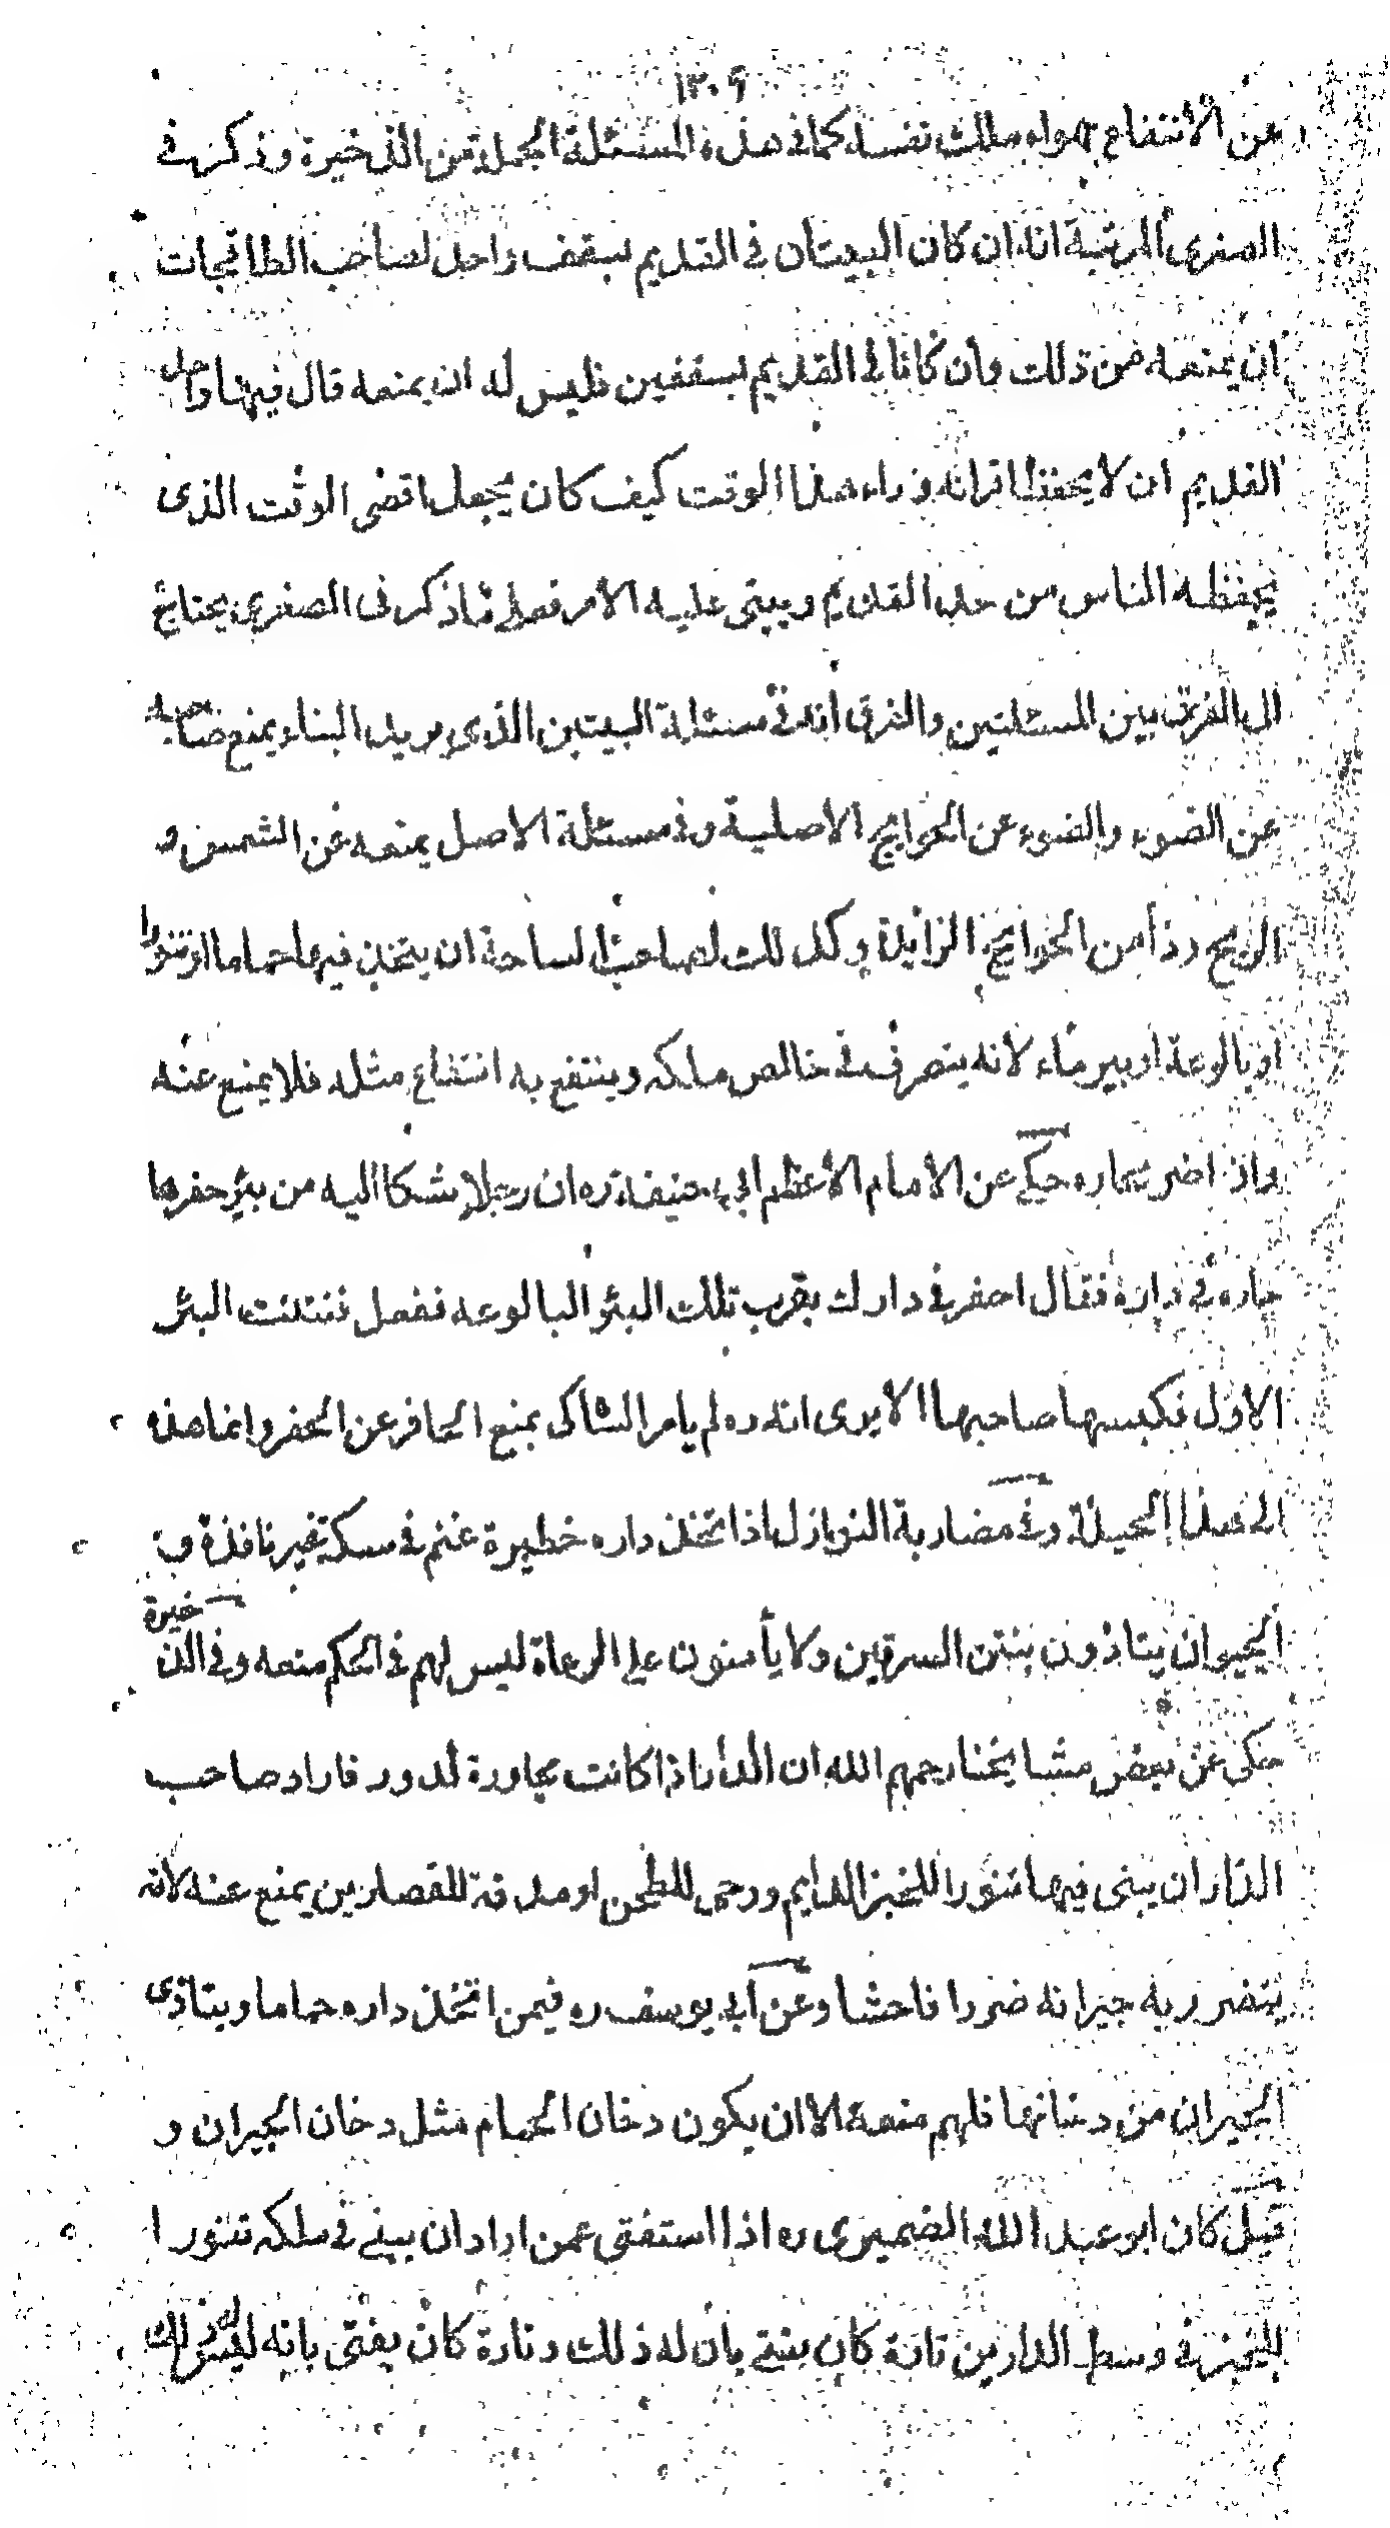 ١٣٠٩
عن الانتفاع بهواء ملك نفسه كما في هذه المسئلة الجملة من الذخيرة وذكر في
الصغرى المرتبة انه ان كان البيتان في القديم بسقف واحد لصاحب الطاقجات
ان يمنعه من ذلك وان كانا في القديم بسقفين فليس له ان يمنعه قال فيها وحد
القديم ان لا يحفظ اقرانه وراء هذا الوقت كيف كان يجعل اقضى الوقت الذى
يحفظه الناس من حد القديم ويبتى عليه الامر فعلى ما ذكر فى الصغرى يحتاج
الى الفرق بين المسئلتين والفرق انه في مسئلة البيتين الذي يريد البناء يمنع صاحبه
عن الضوء والضوء عن الحوايج الاصلية وفي مسئلة الاصل يمنعه عن الشمس و
الريح وذا من الحوايج الزايدة وكذلك لصاحب الساحة ان يتخذ فيها حماما او تنورا
او بالوعة او بير ماء لانه يتصرف في خالص ملكه وينتفع به انتفاع مثله فلا يمنع عنه
واذ اضر بجاره حكي عن الامام الاعظم ابي حنيفة ره ان رجلا شكا اليه من بئر حفرها
جاره في داره فقال احفر في دارك بقرب تلك البئر البالوعه ففعل فنتنت البئر
الاول فكبسها صاحبها الا يرى انه ره لم يامر الشاكى بمنع الحافر عن الحفر وانما هذه
الى هذا الحيلة وفي مضاربة النوازل اذا اتخذ داره خطيرة غنم في سكة غير نافذة و
الجيران يتاذون بنتن السرقين ولا يأمنون على الرعاة ليس لهم في الحكم منعه وفي الذخيرة
حكى عن بعض مشايخنا رحمهم الله ان الدار اذا كانت مجاورة لدور فاراد صاحب
الدار ان يبنى فيها تنورا للخبز الدايم ورحى للطحن او مدقة للقصارين يمنع عنه لانه
يتضرر به جيرانه ضررا فاحشا وعن ابي يوسف ره فيمن اتخذ داره حماما ويتاذى
الجيران من دخانها فلهم منعه الا ان يكون دخان الحمام مثل دخان الجيران و
قيل كان ابو عبد الله الضميرى ره اذا استفتى عمن اراد ان يبني في ملكه تنورا
للخبز في وسط الدارين تارة كان يفتي بان له ذلك وتارة كان يفتى بانه ليس له ذلك